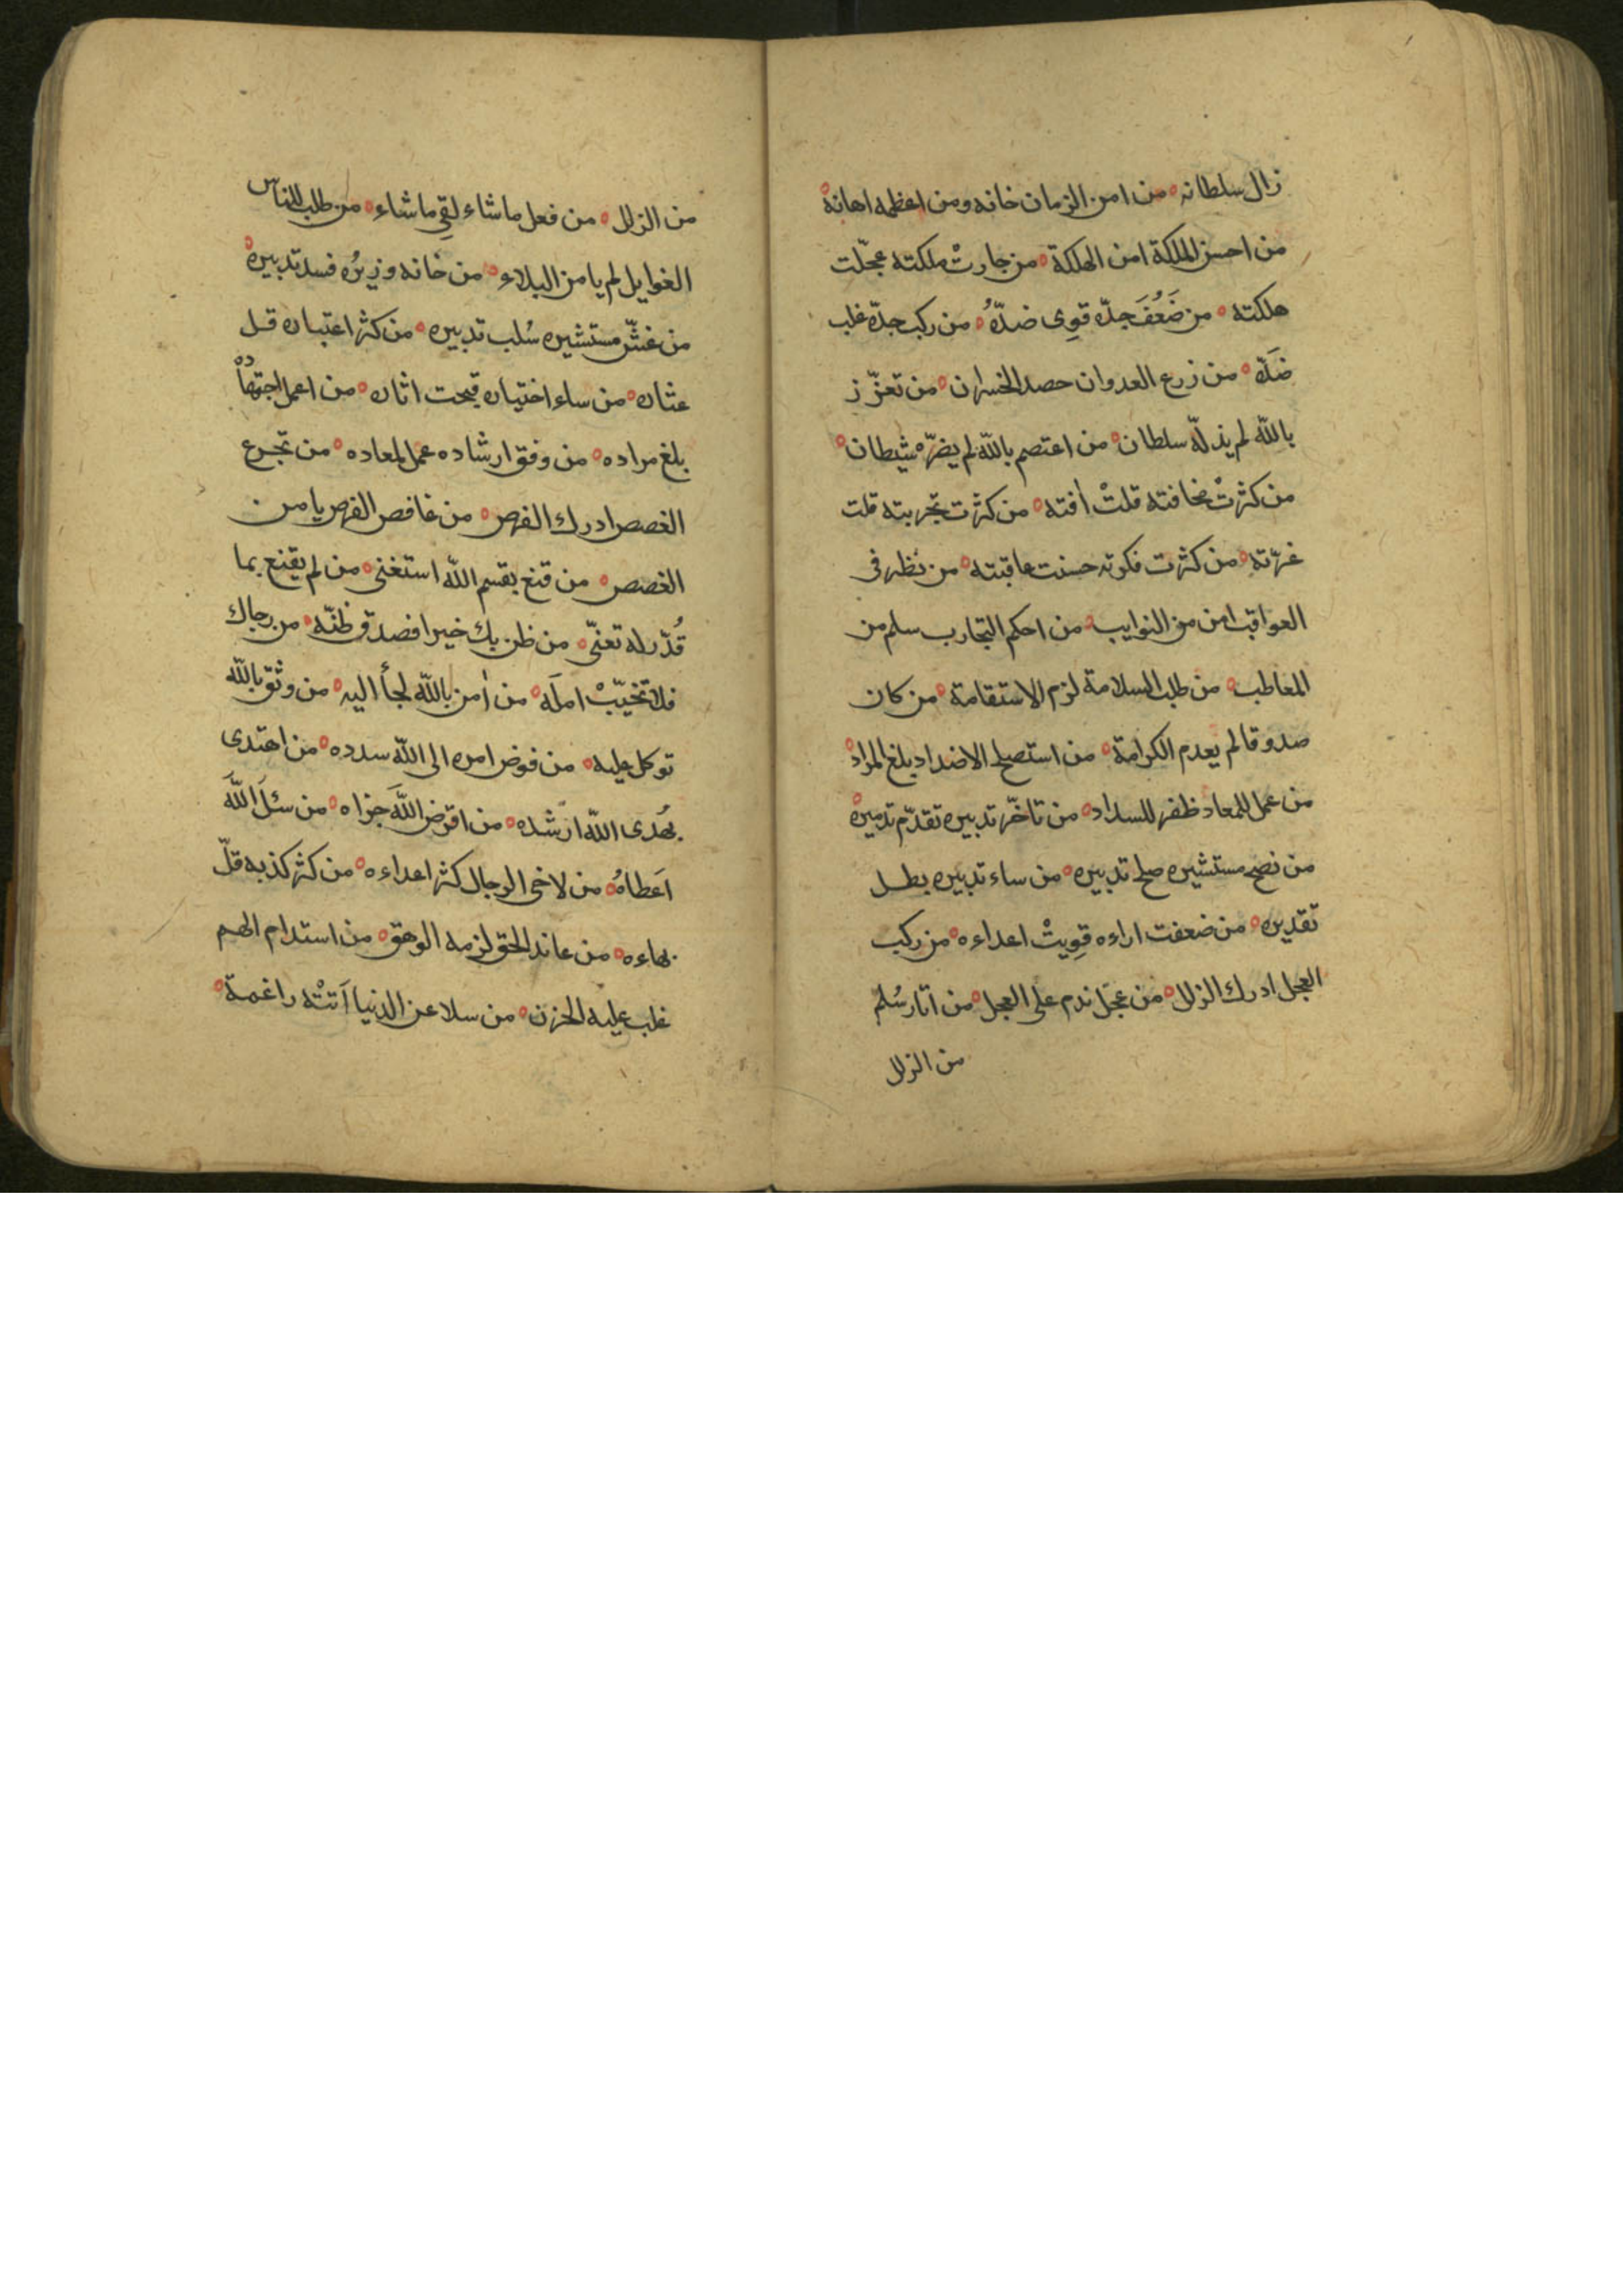 زال سلطانه ٥ من امن الزمان خانه ومن اعظمه اهانه ٥
من احسن الملكة امن الهلكة ٥ من جارتْ ملكته عجّلت
هلكته ٥ من ضَعُفَ جدّه قوِى ضدّهُ ٥ من ركب جدّه غلب
ضدّه ٥ من زرع العدوان حصد الخسران ٥ من تعزّز
بالله لم يذلّه سلطان ٥ من اعتصم بالله لم يضرّه شيطان ٥
من كثرتْ مخافته قلتْ افته ٥ من كثرت تجربته قلت
غرّته ٥ من كثرت فكرته حسنت عاقبته ٥ من نظر فى
العواقب امن من النوايب ٥ من احكم التجارب سلم من
المعاطب ٥ من طلب السلامة لزم الاستقامة ٥ من كان
صدوقا لم يعدم الكرامة ٥ من استصلح الاضداد بلغ المراد ٥
من عمل للمعاد ظفر للسداد ٥ من تاخّر تدبيره تقدّم تدميره ٥
من نصح مستشيره صلح تدبيره ٥ من ساء تدبيره بطل
تقديره ٥ من ضعفت اراءه قوِيتْ اعداءه ٥ من ركب
العجل ادرك الزلل ٥ من عجّل ندم على العجل ٥ من اتار سُلم
من الزلل
من الزلل ٥ من فعل ما شاء لقِى ما شاء ٥ من طلب للناس
الغوايل لم يامن البلاء ٥ من خانه وزيرُه فسد تدبيره ٥
من غشّ مستشيره سُلب تدبيره ٥ من كثر اعتباره قل
عثاره ٥ من ساء اختياره قبحت اثاره ٥ من اعمل اجتهاده
بلغ مراده ٥ من وفق ارشاده عمل لمعاده ٥ من تجرع
الغصص ادرك الفرص ٥ من غافص الفرص يامن
الغصص ٥ من قنع بقسم الله استغنى ٥ من لم يقنع بما
قُدّر له تعنّى ٥ من ظن بك خيرا فصدق ظنّه ٥ من رجاك
فلا تخيّبْ املَه ٥ من اٰمن بالله لجأ اليه ٥ من وثق بالله
توكل عليه ٥ من فوض امره الى الله سدده ٥ من اهتدى
بهُدى الله ارشده ٥ من اقرض اللهَ جزاه ٥ من سئلَ اللهَ
اَعطاهُ ٥ من لاحى الرجال كثر اعداءه ٥ من كثر كذبه قلّ
بهاءه ٥ من عاند الحق لزمه الوهق ٥ من استدام الهم
غلب عليه الحزن ٥ من سلا عن الدنيا اَتتْه راغمة ٥